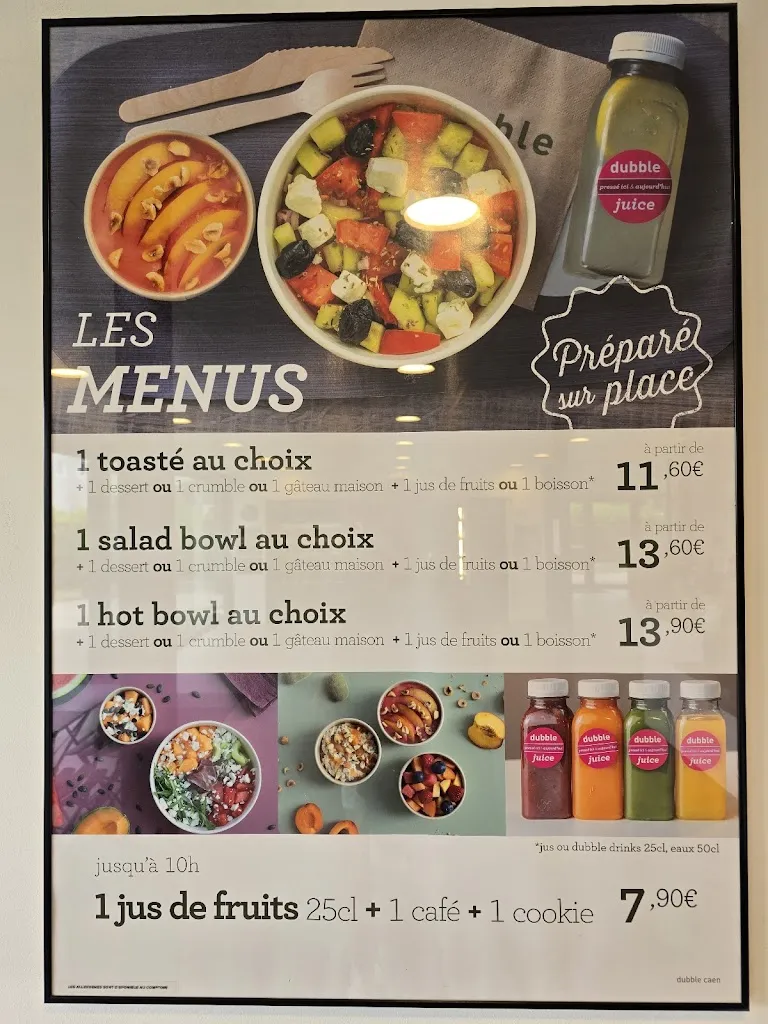 ble
dubble
pressé ici & aujourd'hui
juice
LES
MENUS
Préparé
sur place
1 toasté au choix
+ 1 dessert ou 1 crumble ou 1 gâteau maison + 1 jus de fruits ou 1 boisson*
à partir de
11,60€
1 salad bowl au choix
+ 1 dessert ou 1 crumble ou 1 gâteau maison + 1 jus de fruits ou 1 boisson*
à partir de
13,60€
1 hot bowl au choix
+ 1 dessert ou 1 crumble ou 1 gâteau maison + 1 jus de fruits ou 1 boisson*
à partir de
13,90€
dubble
juice
dubble
juice
dubble
juice
dubble
juice
*jus ou dubble drinks 25cl, eaux 50cl
jusqu'à 10h
1 jus de fruits 25cl + 1 café + 1 cookie 7,90€
dubble caen